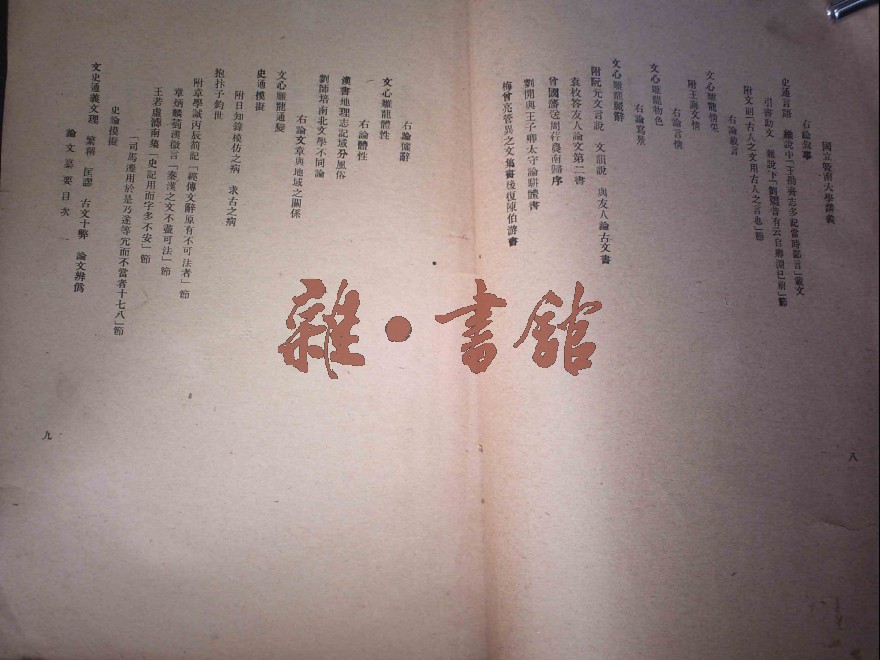 國立暨南大學講義
右論敍事
史通言語 雜說中「王劭齊志多記當時鄙言」節
附文則「古人之文用古人之言也」節
右論敍言
附王
文心雕龍情采
右論言情
文心雕龍物色
右論寫景
文心雕龍麗辭
附阮元文言說 文韻說 與友人論古文書
袁枚答友人論文第二書
曾國藩送周荇農南歸序
劉開與王子卿太守論駢體書
梅曾亮管異之文集書後復陳伯游書
八
右論儷辭
文心雕龍體性
右論體性
漢書地理志記域分風俗
劉師培南北文學不同論
右論文章與地域之關係
文心雕龍通變
史通摸擬
附日知錄模仿之病 求古之病
抱朴子鈞世
附章學誠丙辰劄記「經傳文辭原有不可法者」節
章炳麟菿漢微言「秦漢之文不盡可法」節
王若虛滹南集「史記用而字多不安」節
「司馬遷用於是乃遂等宂而不當者十七八」節
史論摸擬
文史通義文理 繁稱 匡謬 古文十弊 論文辨僞
論文纂要目次
九
雜·書館